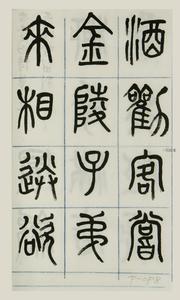 酒勸客嘗
金陵子弟
來相送欲